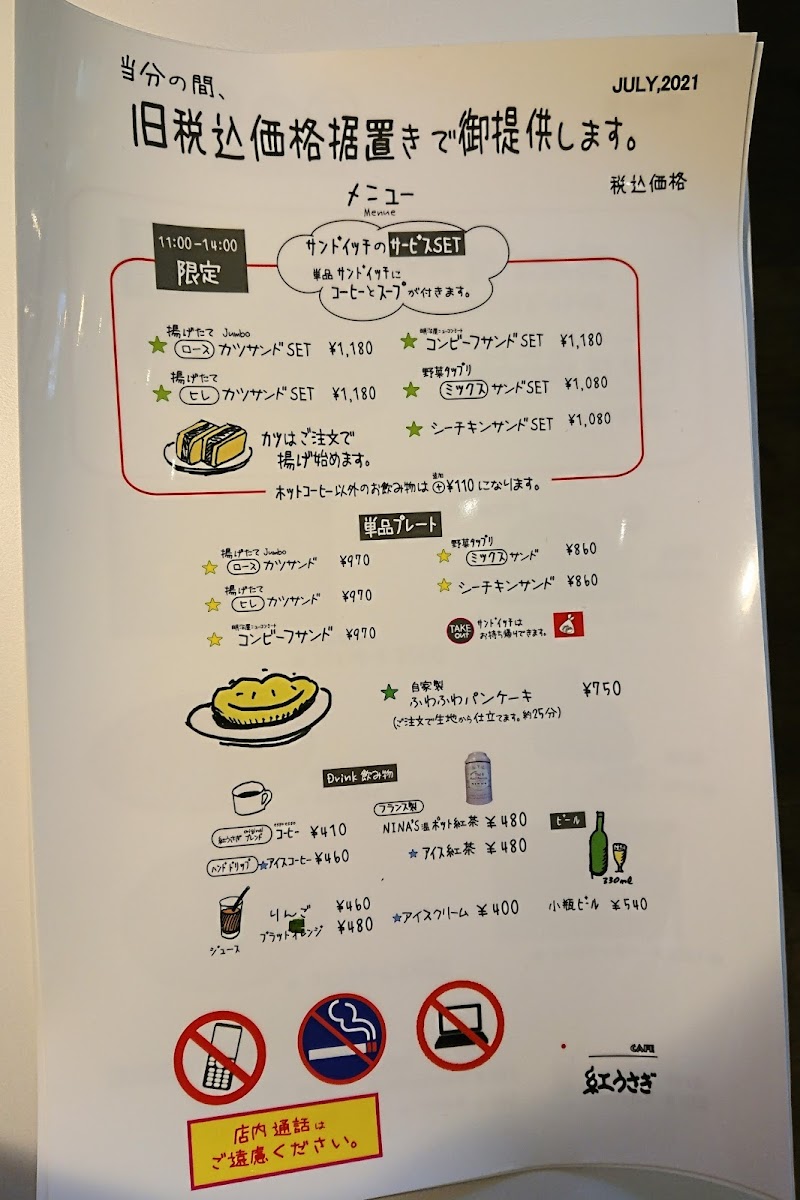 当分の間、
JULY,2021
旧税込価格据置きで御提供します。
税込価格
メニュー
Menue
11:00-14:00
限定
サンドイッチのサービスSET
単品サンドイッチに
コーヒーとスープが付きます。
揚げたて Jumbo
ロース カツサンドSET ¥1,180
揚げたて
ヒレ カツサンドSET ¥1,180
コンビーフサンドSET ¥1,180
野菜タップリ
ミックス サンドSET ¥1,080
シーチキンサンドSET ¥1,080
カツはご注文で
揚げ始めます。
ホットコーヒー以外のお飲み物は追加+¥110になります。
単品プレート
揚げたて Jumbo
ロース カツサンド ¥970
揚げたて
ヒレ カツサンド ¥970
コンビーフサンド ¥970
野菜タップリ
ミックス サンド ¥860
シーチキンサンド ¥860
TAKE out
サンドイッチは
お持ち帰りできます。
自家製
ふわふわパンケーキ ¥750
(ご注文で生地から仕立てます。約25分)
Drink 飲み物
紅うさぎ original ブレンド espresso コーヒー ¥410
ハンドドリップ アイスコーヒー ¥460
フランス製
NINA'S 温ポット紅茶 ¥480
アイス紅茶 ¥480
ビール
330ml
小瓶ビール ¥540
ジュース
りんご ¥460
ブラッドオレンジ ¥480
アイスクリーム ¥400
店内通話は
ご遠慮ください。
CAFE
紅うさぎ